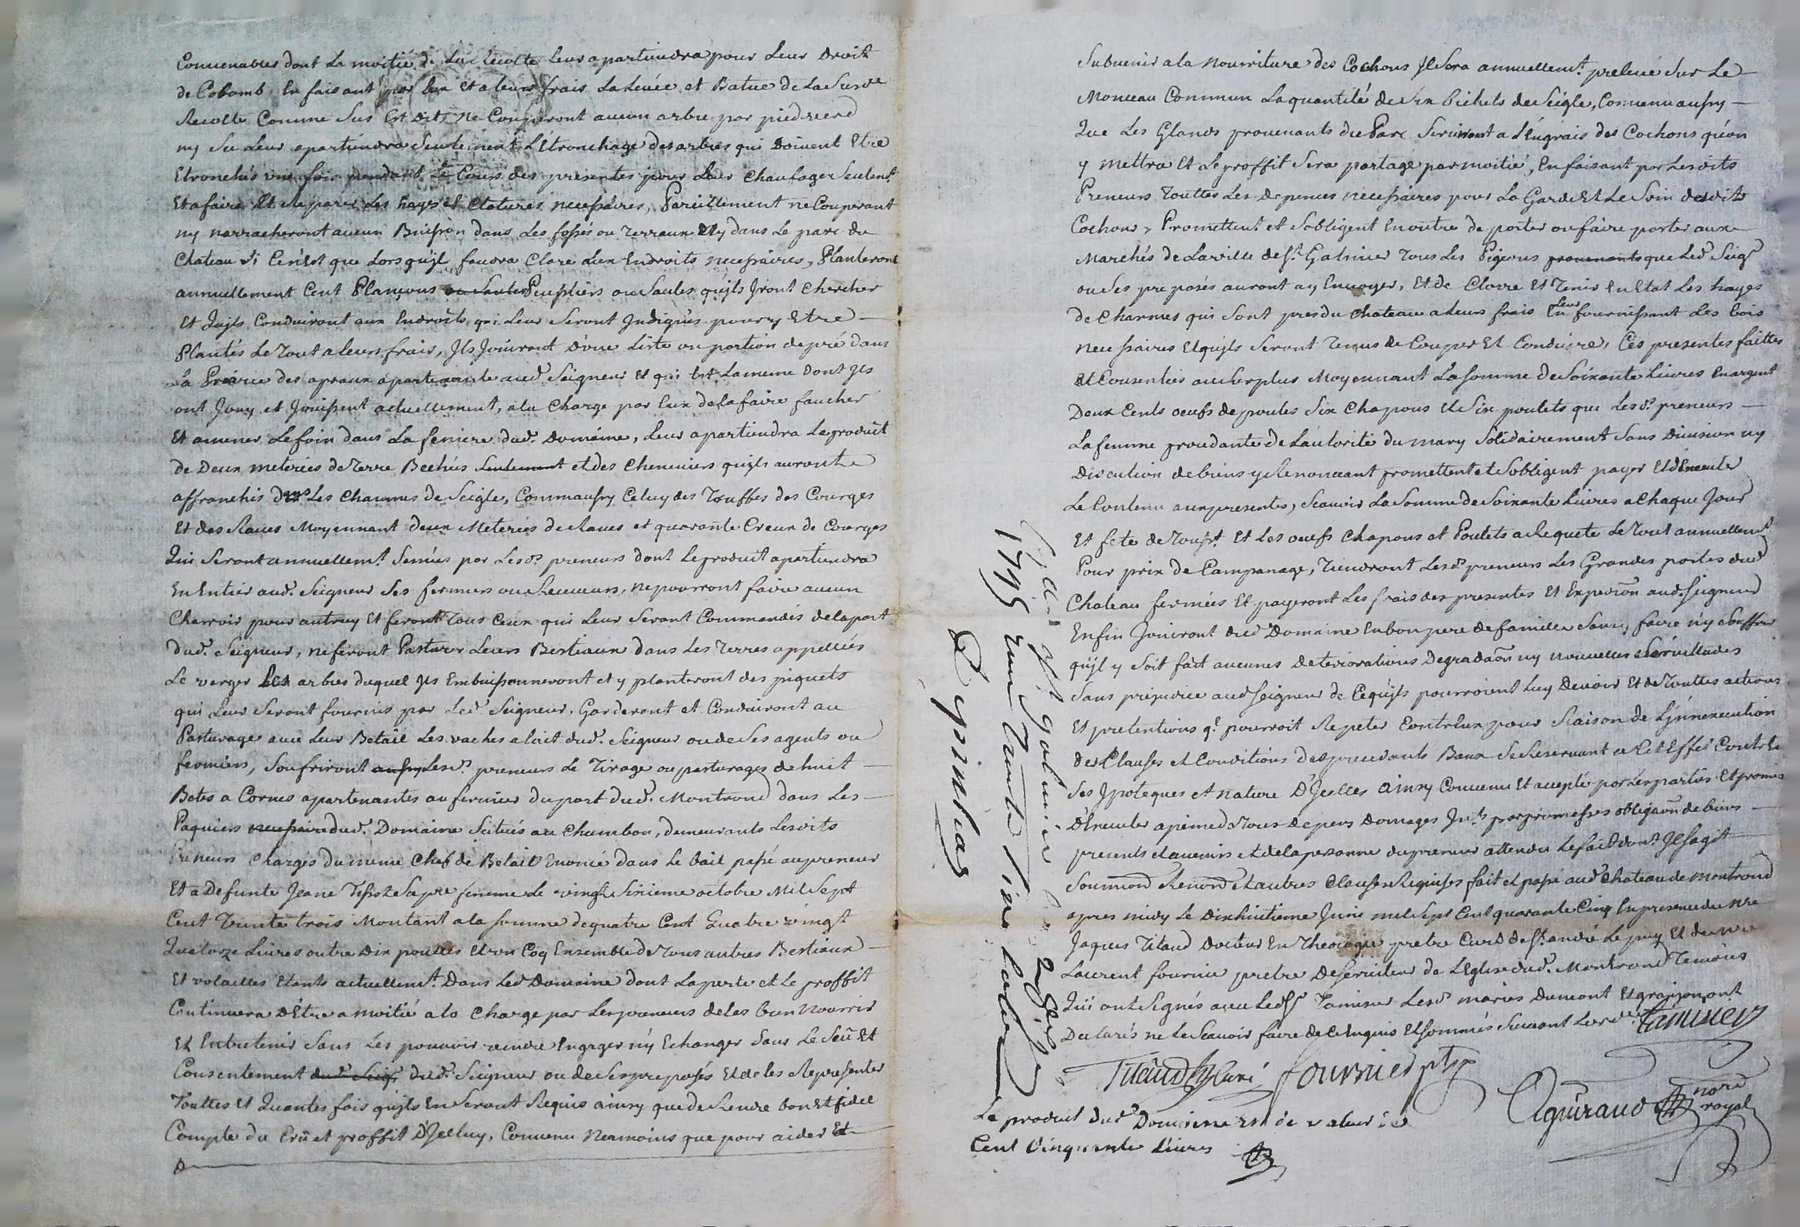 Convenables dont la moitié de la recolte leur apartiendra pour leur Droit
de Colomb. En faisant par Eux et a leurs frais La levée et Batue de La Susde
Recolte Comme Sus Est dit, Ne Couperont aucun arbre par pied verd
ny Sec Leur apartiendra Seulement L'Etronchage des arbres qui Doivent Etre
Etronchés une fois pendant Le Cours des presentes pour Leur Chaufage Seulemt.
Et a faire Et Reparer Les hayes et Clotures necessaires, Pareillement ne Couperont
ny narracheront aucun Buisson dans Les fossés ou Terraux Ny dans Le parc du
Chateau Si Ce n'Est que Lorsquyl faudra Clore Lieux Endroits necessaires, Planteront
annuellement Cent Plançons ou Saules Peupliers ou Saules quyls Jront Chercher
Et quyls Conduiront aux Endroits qui Leur Seront Jndiqués pour y Etre
Plantés Le Tout a Leurs frais, Jls Joüiront D'une Liste ou portion de pré dans
La Prairie des apraux apartenante aud. Seigneur Et qui Est La meme Dont Jls
ont Jouy et Jouissent actuellement, a la Charge par Eux de la faire faucher
Et amener Le foin dans La feniere dud. Domaine, Leur apartiendra Le produit
de Deux meterées de Terre Bechés Seulement et des Cheneviers quyls auront
affranchis dans Les Chaumes de Seigle, Comm'aussy Celuy des Touffes des Courges
Et des Raves Moyennant deux Meterées de Raves et quarante Creux de Courges
Qui Seront annuellemt. Semés par Lesds. preneurs dont Le produit apartiendra
En Entier aud. Seigneur Ses fermiers ou Receveurs, ne pourront faire aucun
Charroir pour autruy Et feront Tous Ceux qui Leur Seront Commandés de la part
dud. Seigneur, ne feront Pasturer Leurs Bestiaux dans Les Terres appellées
Le verger Les arbres duquel Jls Embuissonneront et y planteront des piquets
qui Leur Seront fournis par Led. Seigneur. Garderont et Conduiront au
Pasturage avec Leur Betail Les vaches a lait dud. Seigneur ou de Ses agents ou
fermiers, Souffriront aussy Lesds. preneurs Le Tirage ou pasturages de huit
Betes a Cornes apartenantes au fermier du port dud. Montrond dans Les
Paquiers necessaires dud. Domaine Scitués au Chambon, demeurants Lesdits
Preneurs Chargés du meme Chef de Betail Enoncé dans Le bail passé au preneur
Et a Defunte Jeane Sa pre. femme Le vingt Sixieme octobre Mil Sept
Cent Trente trois Montant a la Somme de quatre Cent Quatre vingt
Quatorze Livres outre Dix poulles Et un Coq Ensemble de Tous autres Bestiaux
Et volailles Etants actuellemt. Dans Led. Domaine dont La perte et Le proffit
Continuera D'Etre a moitié a la Charge par Les preneurs de les bien Nourrir
Et Entretenir Sans Les pouvoir vendre Engager ny Echanger Sans Le Sceu Et
Consentement dud. Seigr. dud. Seigneur ou de Ses preposés Et de les Representer
Touttes Et Quantes fois quyls En Seront Requis ainsy que de Rendre bon Et fidel
Compte du Crû et proffit D'Jcelluy, Convenu Neamoins que pour aider Et
Subvenir a la Nourriture des Cochons Jl Sera annuellemt. prelevé Sur Le
Monceau Commun La quantité de Six bichets de Seigle, Convenu aussy
Que Les Glands provenants du Parc Serviront a L'Engrais des Cochons qu'on
y mettra Et Le proffit Sera partagé par moitié, En faisant par Lesdits
Preneurs Touttes Les depences necessaires pour La Garde Et Le Soin desdits
Cochons, Promettent et S'obligent En outre de porter ou faire porter aux
Marchés de La ville de St. Galmier Tous Les Pigeons provenants que Led. Seigr.
ou Ses preposés auront a y Envoyer, Et de Clorre Et Tenir En Etat Les hayes
de Charmes qui Sont pres du Chateau a leurs frais En Leur fournissant Les bois
necessaires Et quyls Seront Tenus de Couper Et Conduire, Ces presentes faittes
Et Consenties au Surplus Moyennant La Somme de Soixante Livres En argent
Deux Cents oeufs de poules Six Chapons Et Six poulets que Lesds. preneurs
La femme procedante de L'autorité du mary Solidairement Sans Division ny
Discution de biens y Renonceant promettent et S'obligent payer Et D'Executer
Le Contenu aux presentes, Scavoir La Somme de Soixante Livres a Chaque Jour
Et fete de Toussts. Et Les oeufs Chapons et Poulets a Requete Le Tout annuellemt.
Pour prix de Campanage, Tiendront Lesds. preneurs Les Grandes portes dud.
Chateau fermées Et payeront Les frais des presentes Et Expedition aud. Seigneur
Enfin Jouiront dud. Domaine En bon pere de famille Sans faire ny Souffrir
quyl y Soit fait aucunes Deteriorations Degradaons ny nouvelles Servitudes
Sans prejudice aud Seigneur de Ce quyls pourroient Luy Devoir Et de Touttes actions
Et pretentions q'l pourroit Repeter Contr'Eux pour Raison de L'jnnexecution
des Clauses Et Conditions des precedents Baux Se Reservant a Cet Effet Contr'Eux
Ses Jpoteques et Nature D'Jcelles ainsy Convenu Et accepté par Les parties Et promis
D'Executer a peine de Tous depens Domages Jnts. par promesses obligaon de biens
presents et avenirs et de la personne du preneur attendu Le fait dont Jl s'agit
Soumion Renon Et autres Clauses Requises fait et passé aud. Chateau de Montrond
apres midy Le Dixhuitieme Juin mil Sept Cent quarante Cinq En presence de Mre
Jaques Titaud Docteur En Theologie pretre Curé de St. andré Le puy Et de Mre
Laurent fournier pretre Desserviteur de L'Eglise dud. Montrond Temoins
Qui ont Signés avec Ledt. Sr Tamisier Lesds. mariés Dumont Et ont
Declarés ne Le Scavoir faire de Ce Enquis Et Sommés Suivant L'ordce Tamisier
Titaud Curé fournier ptre
Aguiraud nore royal
Le produit dud. Domaine Est évalué
Cent Cinquante Livres
Galmier
1745
Depinhac